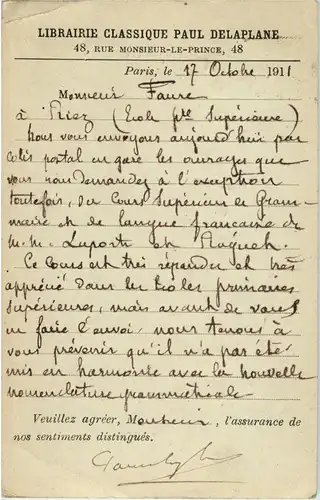 LIBRAIRIE CLASSIQUE PAUL DELAPLANE
48, RUE MONSIEUR-LE-PRINCE, 48
Paris, le 17 Octobre 1911
Monsieur Faure
à Riez (Ecole pre Supérieure)
Nous vous envoyons aujourd'hui par
colis postal en gare les ouvrages que
vous nous demandez à l'exception
toutefois, du Cours Supérieur de Gram-
maire et de langue française de
M.M. Laporte et Raguet.
Ce cours est très répandu et très
apprécié dans les Ecoles primaires
supérieures, mais avant de vous
en faire l'envoi, nous tenons à
vous prévenir qu'il n'a pas été
mis en harmonie avec la nouvelle
nomenclature grammaticale
Veuillez agréer, Monsieur, l'assurance de
nos sentiments distingués.